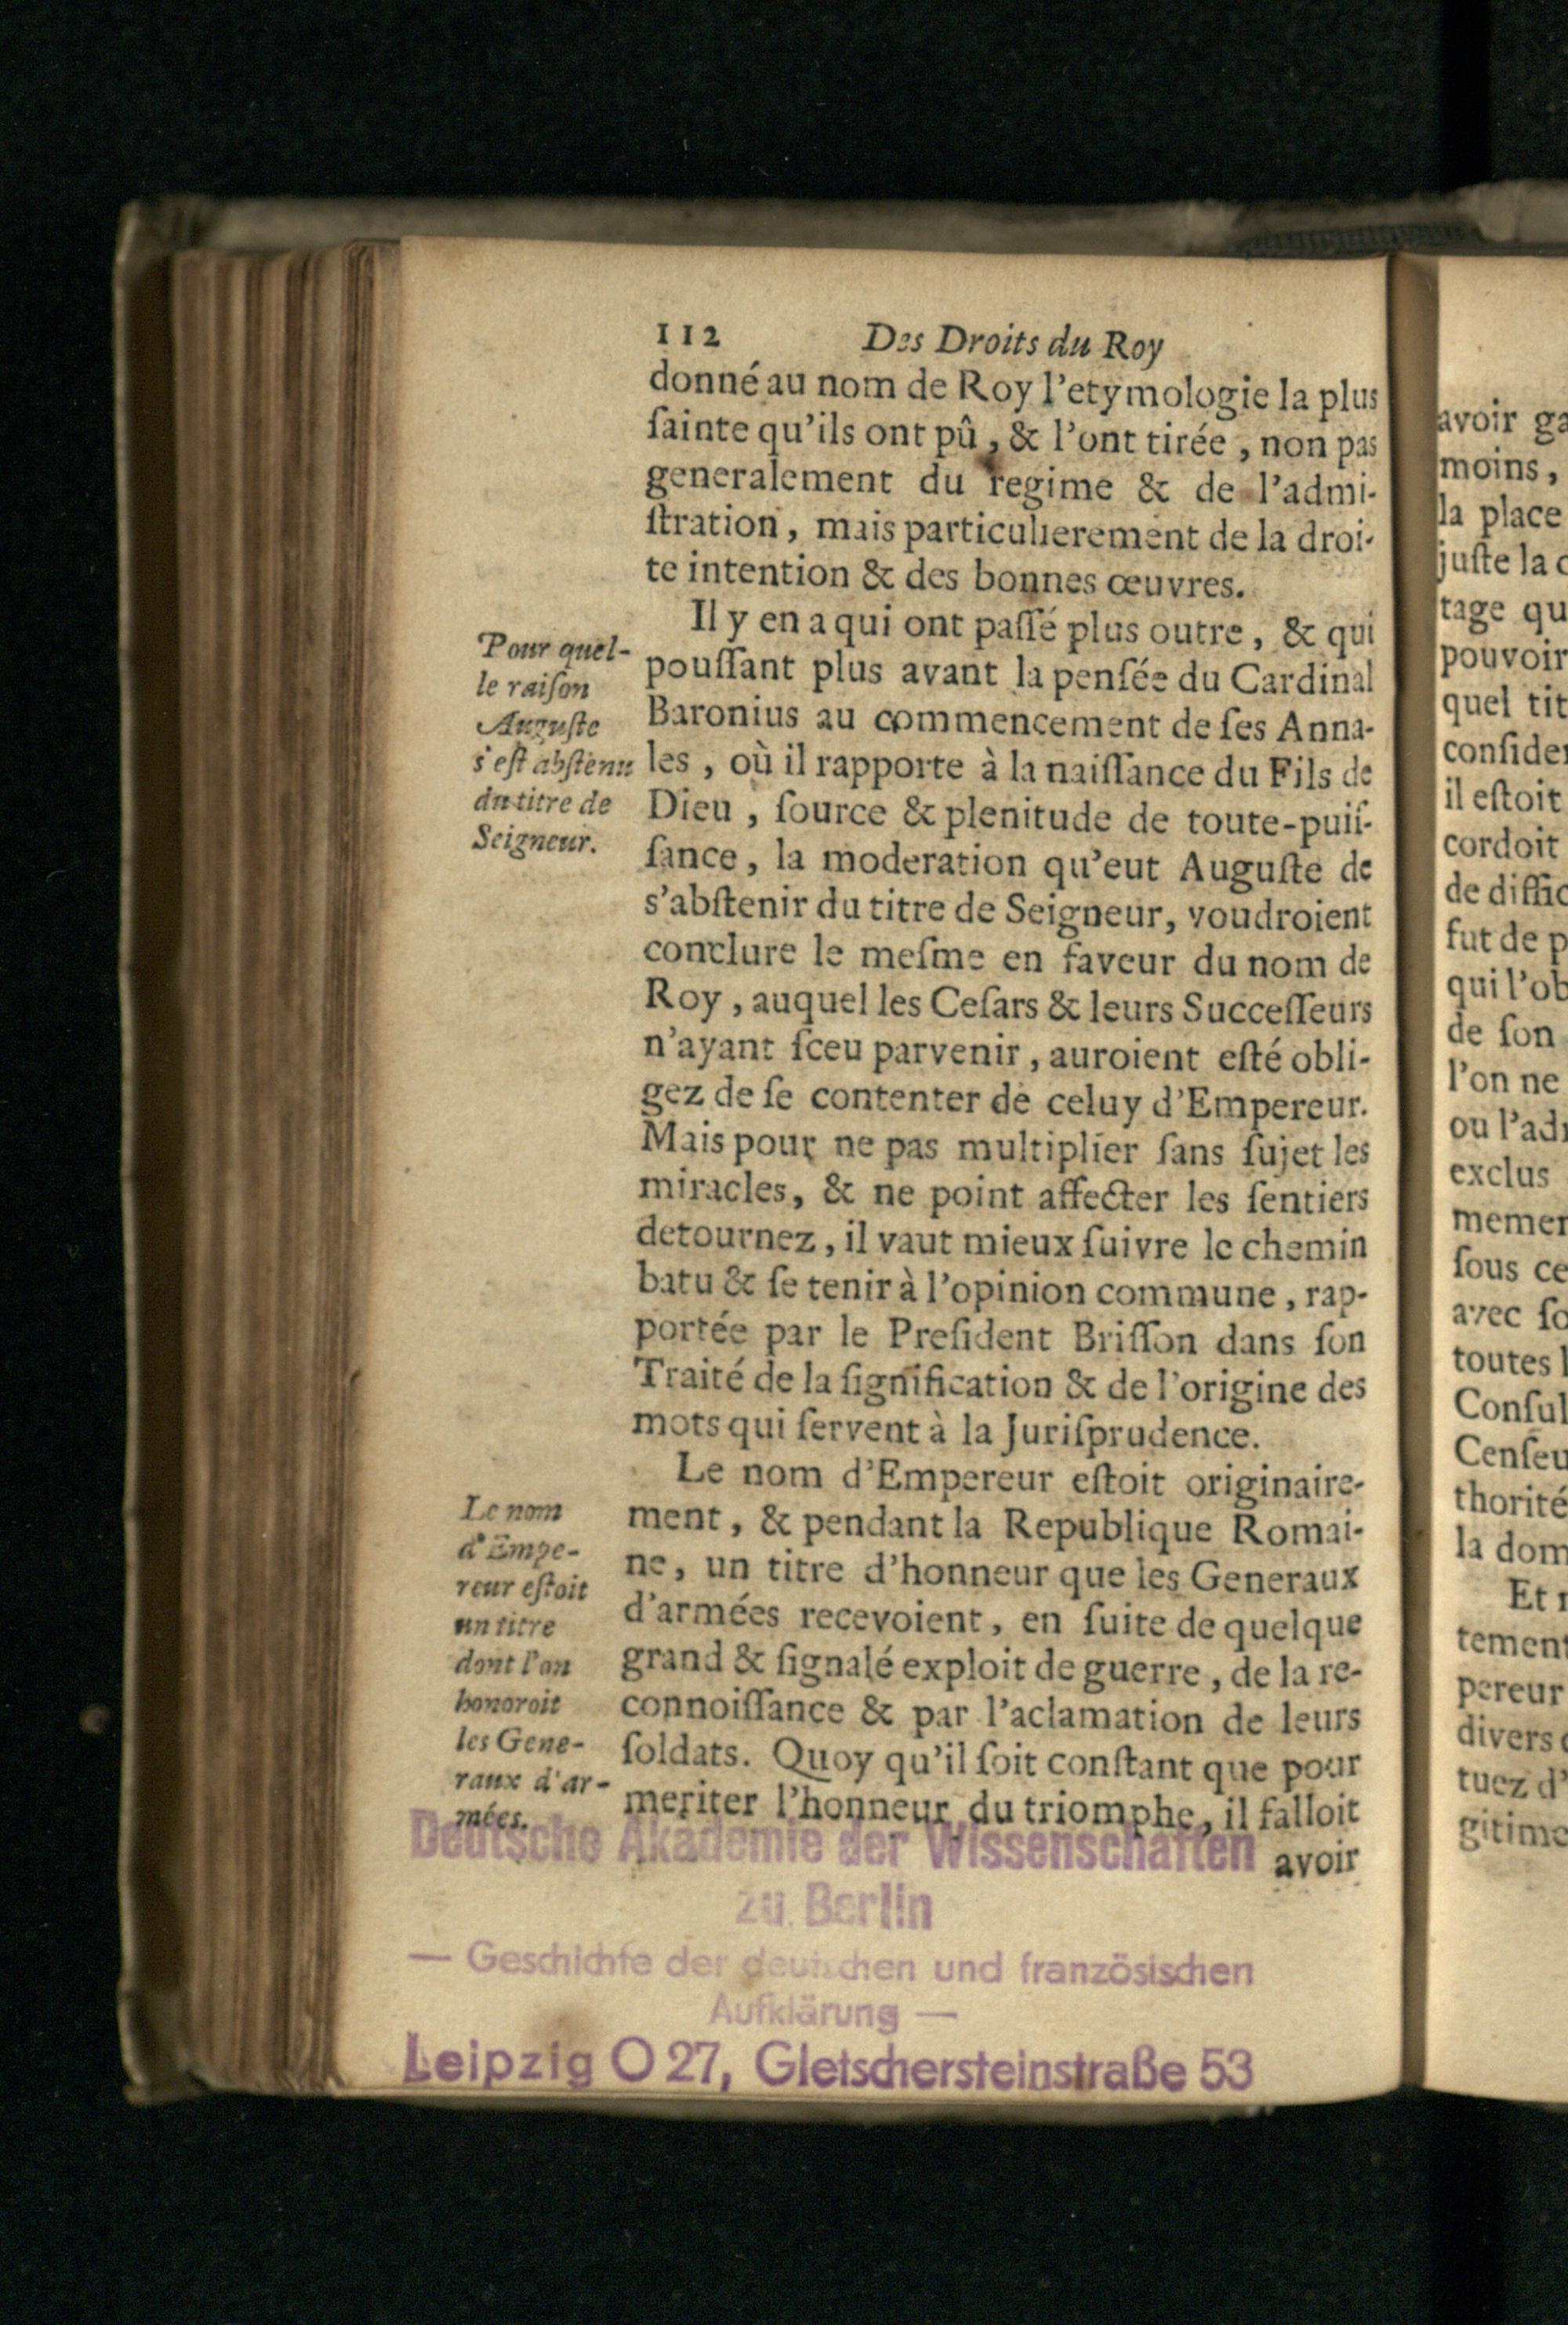 112 Des Droits du Roy
donné au nom de Roy l'etymologie la plus
ſainte qu'ils ont pû, & l'ont tirée, non pas
generalement du regime & de l'admi-
ſtration, mais particulierement de la droi-
te intention & des bonnes œuvres.
Il y en a qui ont paſſé plus outre, & qui
pouſſant plus avant la penſée du Cardinal
Baronius au commencement de ſes Anna-
les, où il rapporte à la naiſſance du Fils de
Dieu, ſource & plenitude de toute-puiſ-
ſance, la moderation qu'eut Auguſte de
s'abſtenir du titre de Seigneur, voudroient
conclure le meſme en faveur du nom de
Roy, auquel les Ceſars & leurs Succeſſeurs
n'ayant ſceu parvenir, auroient eſté obli-
gez de ſe contenter de celuy d'Empereur.
Mais pour ne pas multiplier ſans ſujet les
miracles, & ne point affecter les ſentiers
detournez, il vaut mieux ſuivre le chemin
batu & ſe tenir à l'opinion commune, rap-
portée par le Preſident Briſſon dans ſon
Traité de la ſignification & de l'origine des
mots qui ſervent à la Juriſprudence.
Le nom d'Empereur eſtoit originaire-
ment, & pendant la Republique Romai-
ne, un titre d'honneur que les Generaux
d'armées recevoient, en ſuite de quelque
grand & ſignalé exploit de guerre, de la re-
connoiſſance & par l'aclamation de leurs
ſoldats. Quoy qu'il ſoit conſtant que pour
meriter l'honneur du triomphe, il falloit
avoir
Pour quel-
le raiſon
Auguſte
s'eſt abſtenu
du titre de
Seigneur.
Le nom
d'Empe-
reur eſtoit
un titre
dont l'on
honoroit
les Gene-
raux d'ar-
mées.
Deutsche Akademie der Wissenschaften
zu Berlin
— Geschichte der deutschen und französischen
Aufklärung —
Leipzig O 27, Gletschersteinstraße 53
avoir
moins,
la place
juſte la
tage
pouvoir
quel
il eſtoit
cordoit
fut de
de ſon
l'on ne
exclus
ſous
avec
toutes
la
Et
divers